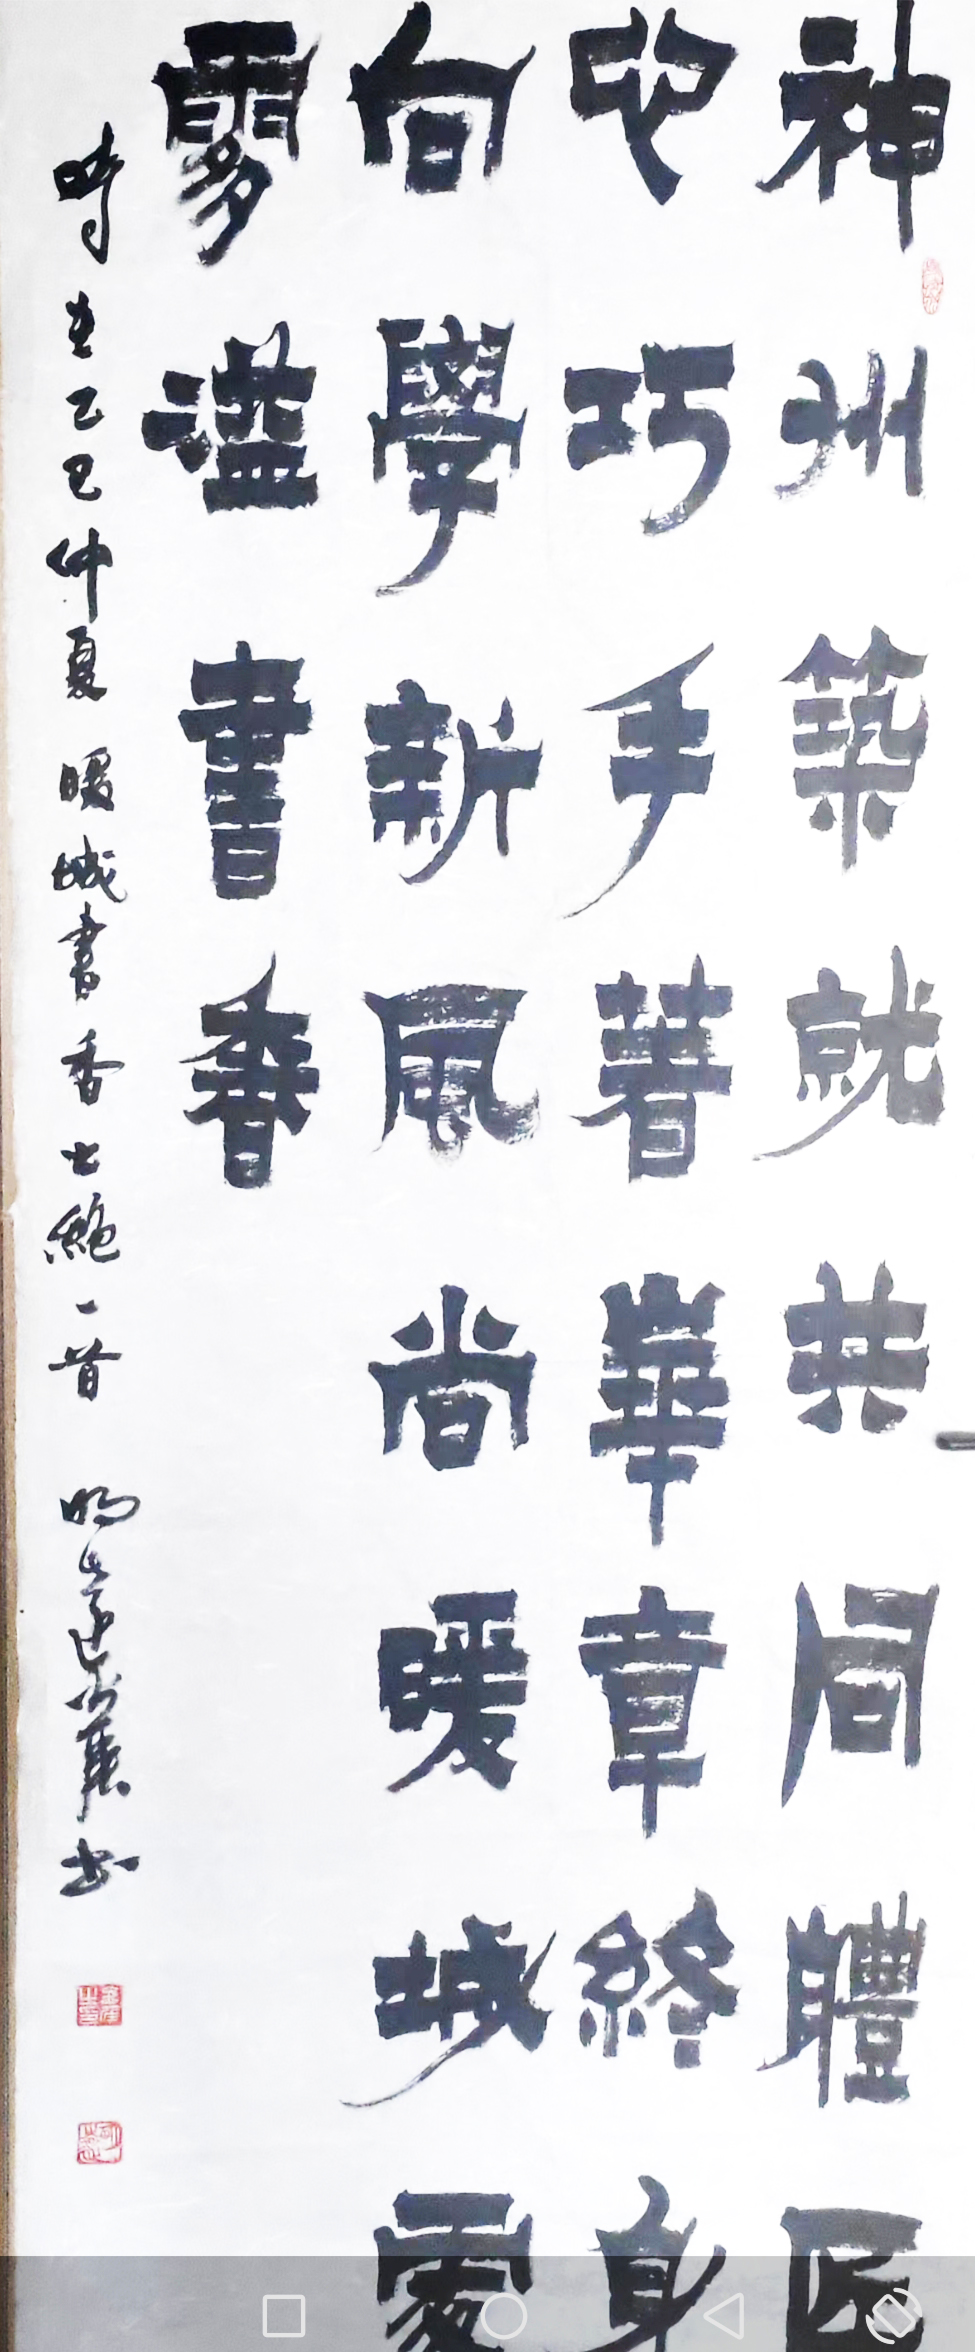 神州築就共同體匠
心巧手著華章終身
向學新風尚暖城處
處溢書香
時在乙巳仲夏 暖城書香七絕一首 書